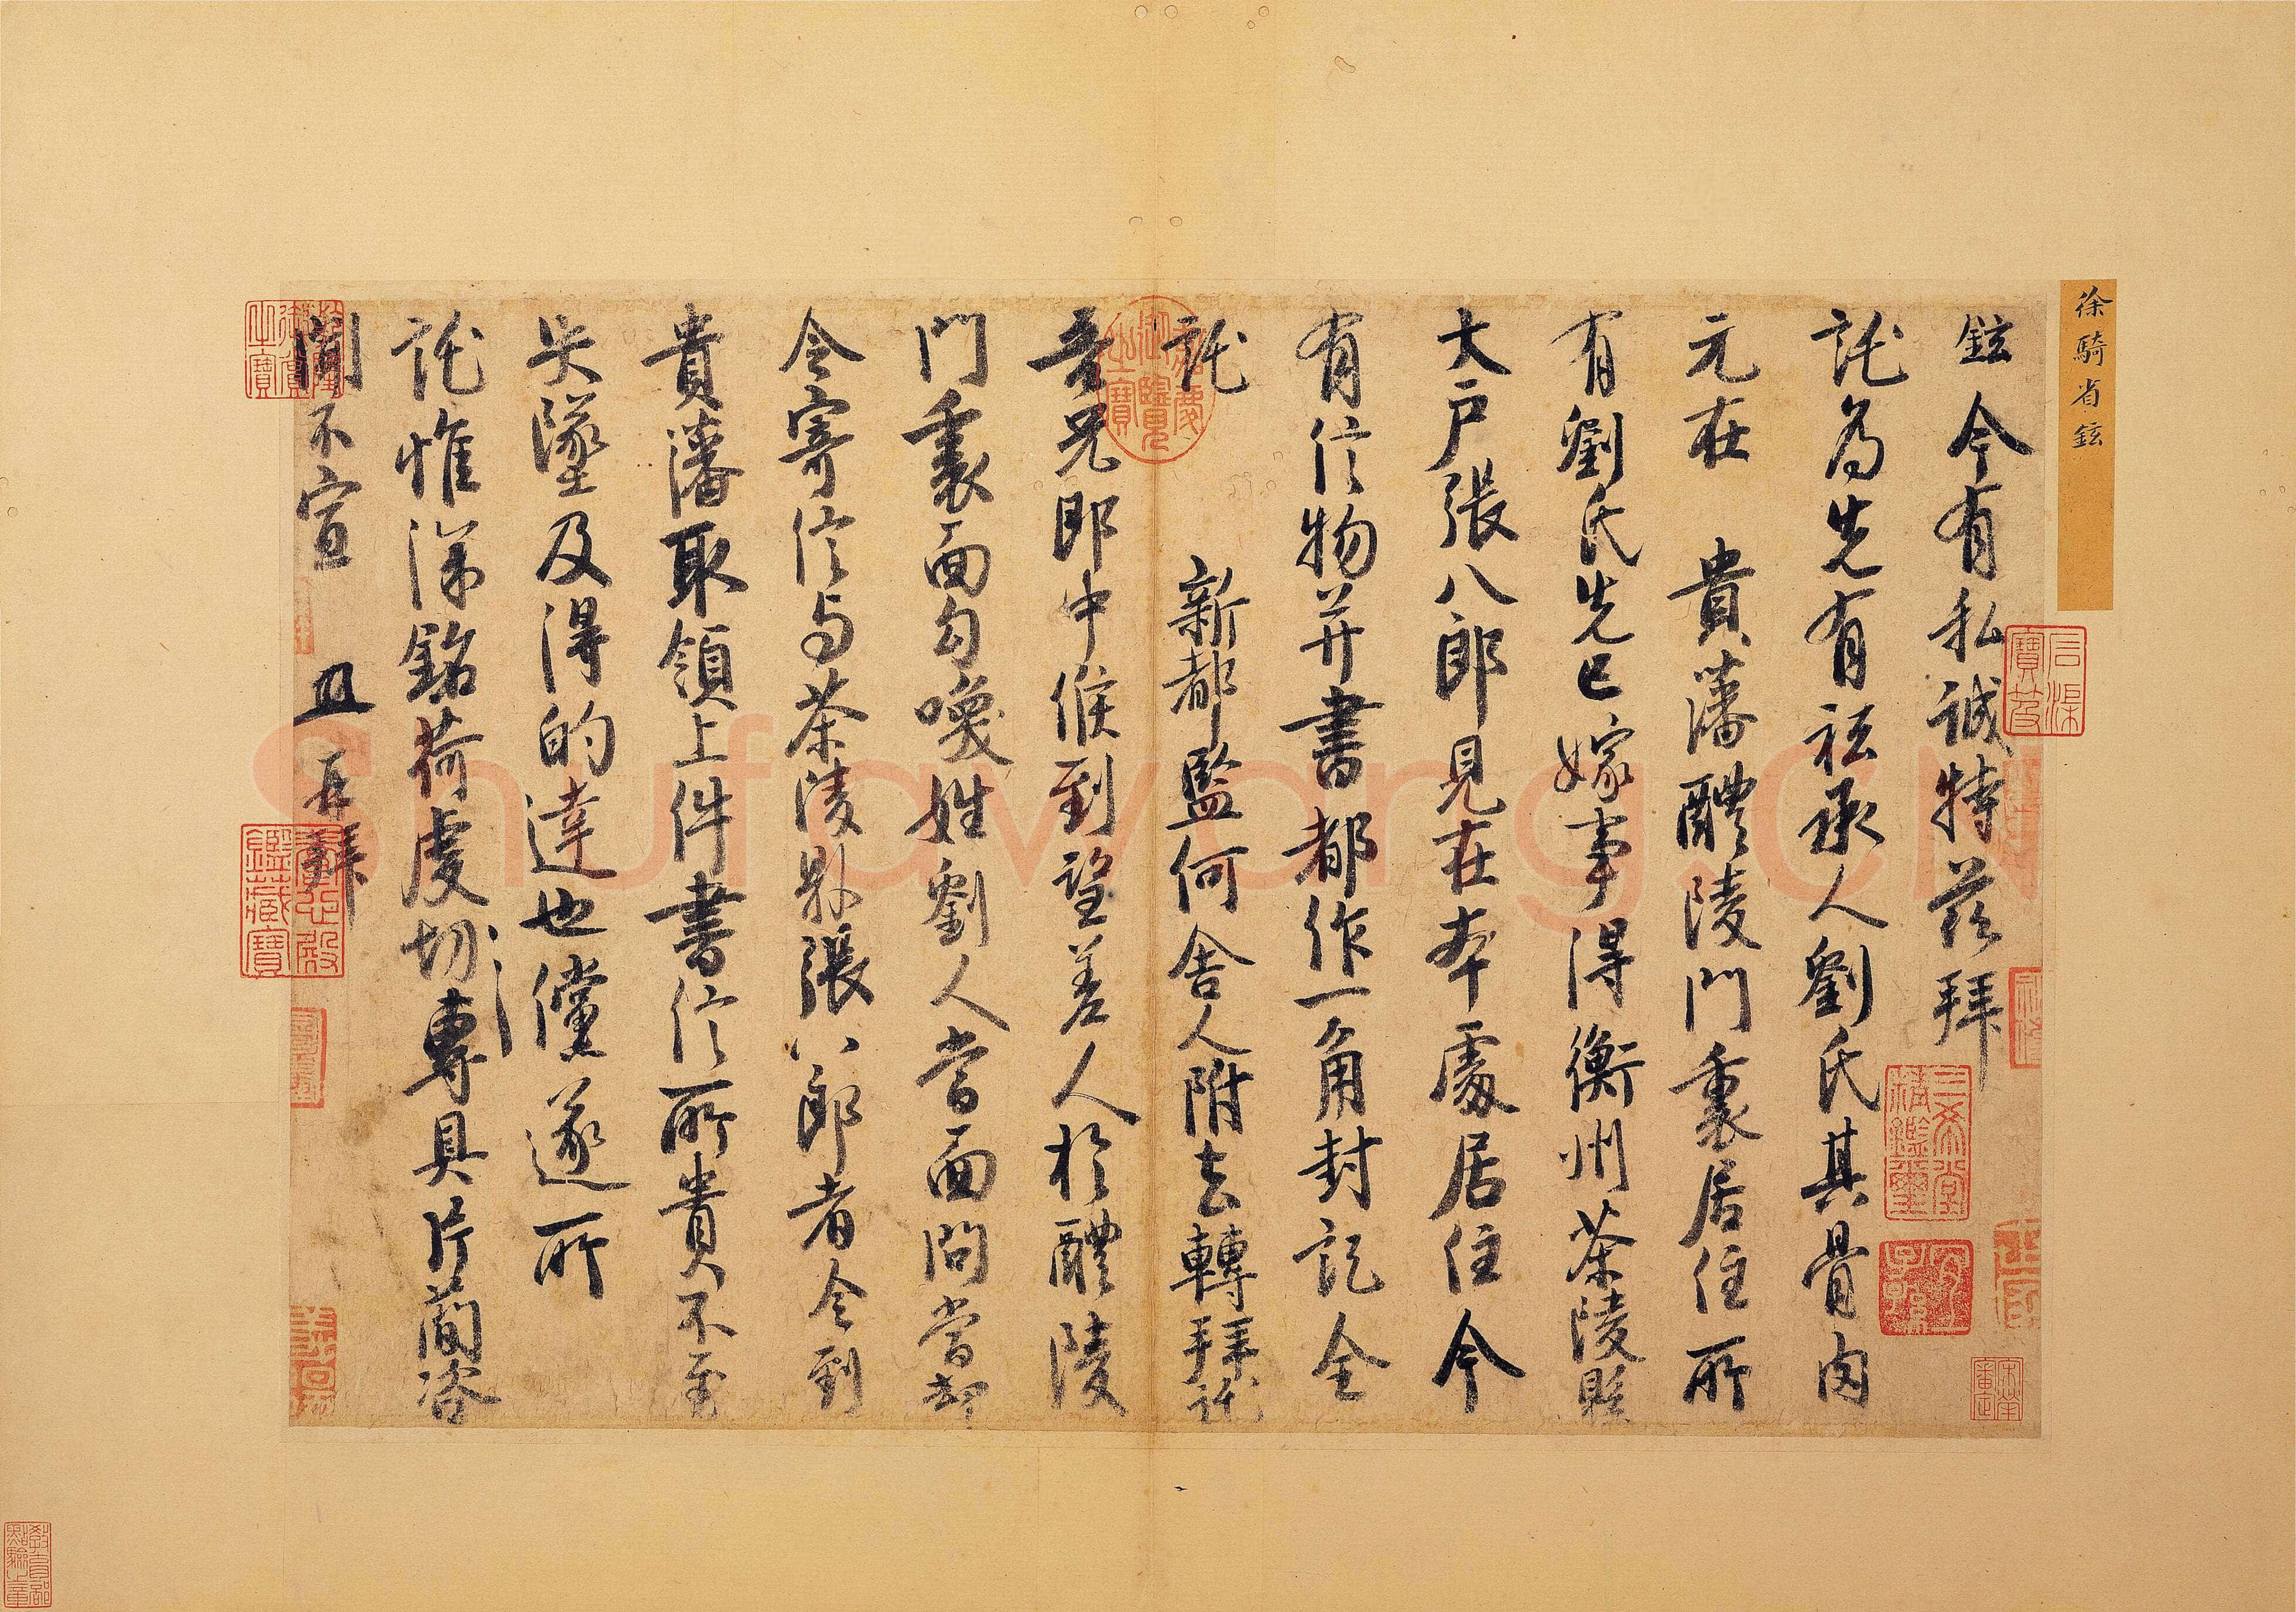 徐騎省鉉
鉉今有私誠特茲拜
託為先有祗承人劉氏其骨肉
元在 貴藩醴陵門裏居住所
有劉氏先已嫁事得衡州茶陵縣
大戶張八郎見在本處居住今
有信物并書都作一角封記全
託 新都監何舍人附去轉拜託
吾兄郎中候到望差人於醴陵
門裏面勾喚姓劉人當面問當却
令寄信与茶陵縣張八郎者令到
貴藩取領上件書信所貴不至
失墜及得的達也儻遂所
託惟深銘荷虔切專具片簡咨
聞不宣 再拜
Shufawang.CN